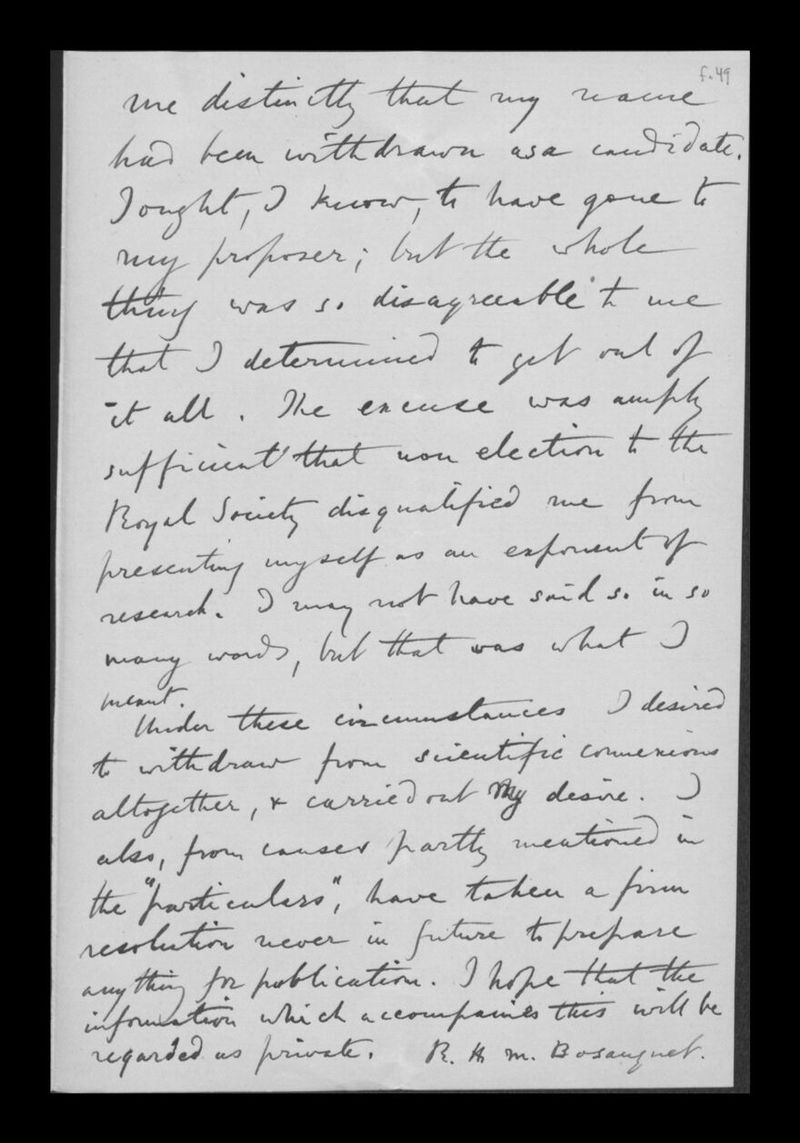 f.49
me distinctly that my name
had been withdrawn as a candidate.
I ought, I know, to have gone to
my proposer; but the whole
thing was so disagreeable to me
that I determined to get out of
it all. The excuse was amply
sufficient that non election to the
Royal Society disqualified me from
presenting myself as an exponent of
research. I may not have said so in so
many words, but that was what I
meant.
Under these circumstances I desired
to withdraw from scientific connexions
altogether, & carried out my desire. I
also, from causes partly mentioned in
the "particulars", have taken a firm
resolution never in future to prepare
anything for publication. I hope that the
information which accompanies this will be
regarded as private. R. H. M. Bosanquet.